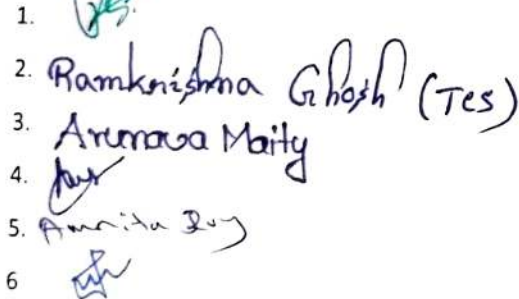 1.
2. Ramkrishna Ghosh (Tes)
3. Arunava Maity
4.
5. Amrita Roy
6